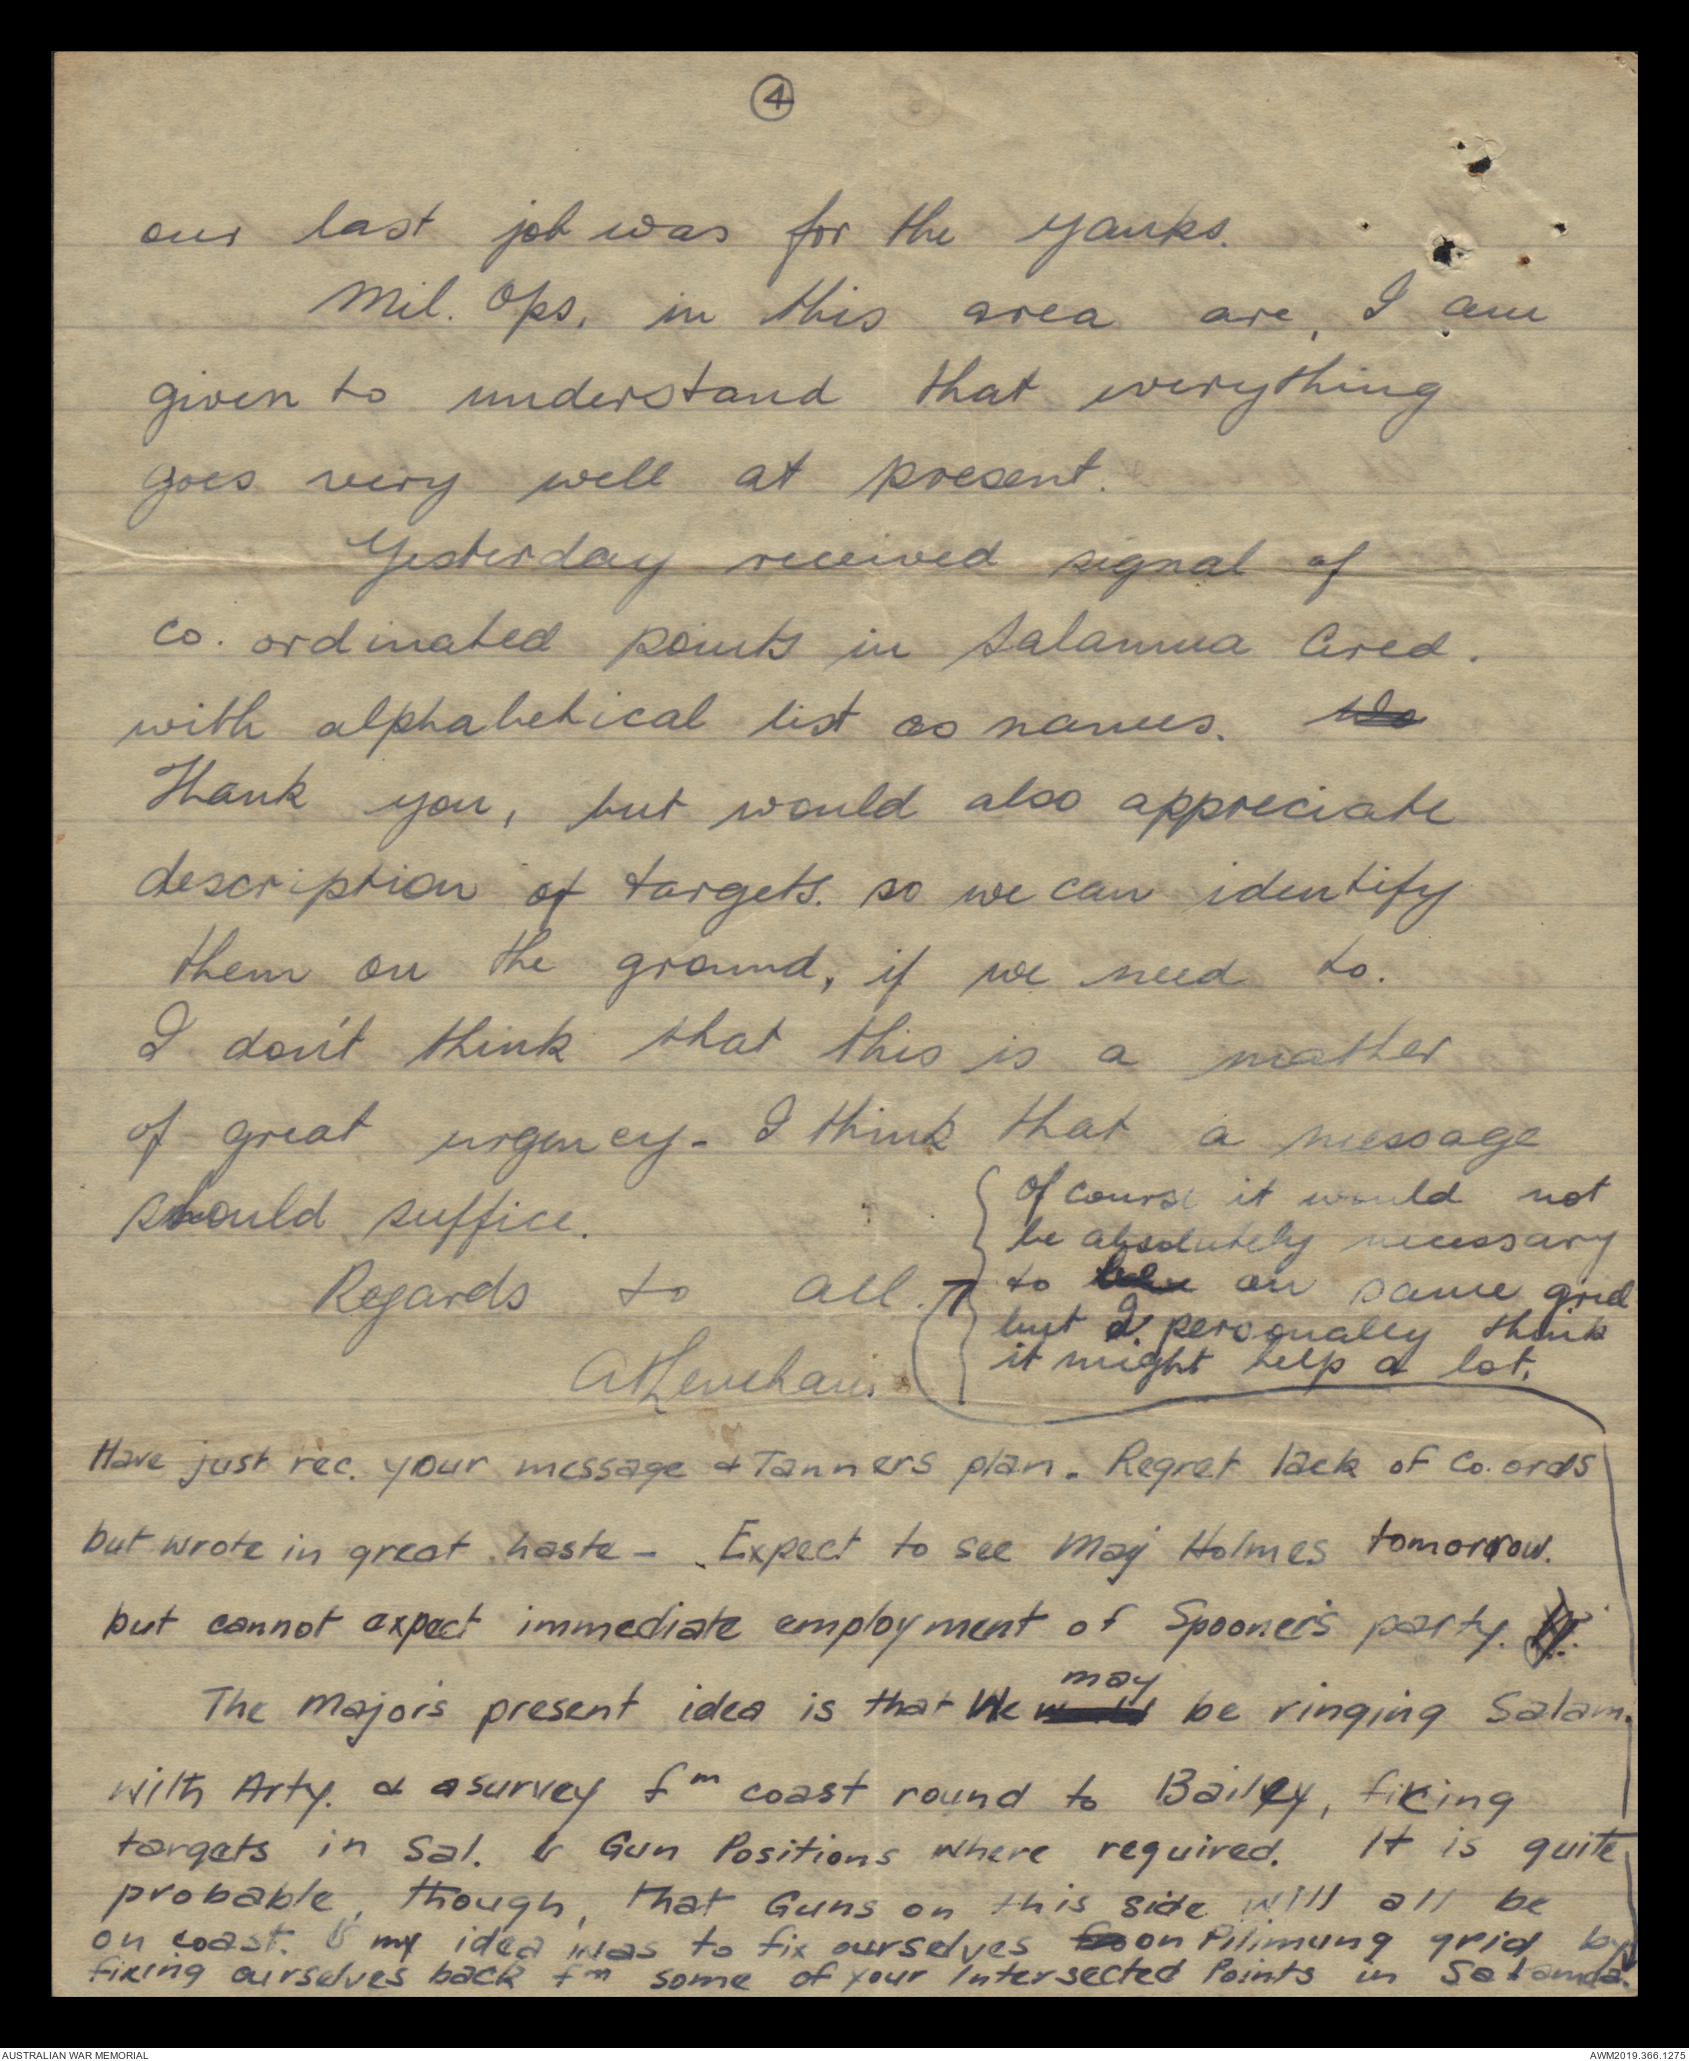 4
our last job was for the Yanks.
Mil. Ops, in this area are, I am
given to understand that everything
goes very well at present.
Yesterday received signal of
co. ordinated points in Salamua Area.
with alphabetical list as names.
Thank you, but would also appreciate
description of targets. so we can identify
them on the ground, if we need to.
I don't think that this is a matter
of great urgency - I think that a message
should suffice.
Regards to all.
Have just rec. your message & Tanners plan. Regret lack of Co. ords
but wrote in great haste - Expect to see Maj Holmes tomorrow.
but cannot expect immediate employment of Spooner's party.
The Major's present idea is that We may be ringing Salam.
with Arty. & a survey fm coast round to Bailey, fixing
targets in Sal. & Gun Positions where required. It is quite
probable, though, that Guns on this side will all be
on coast. & my idea was to fix ourselves on Pilimung grid by
fixing ourselves back fm some of your Intersected Points in Salamua.
of course it would not
be absolutely necessary
to on same grid
but I personally think
it might help a lot.
AUSTRALIAN WAR MEMORIAL
AWM2019.366.1275